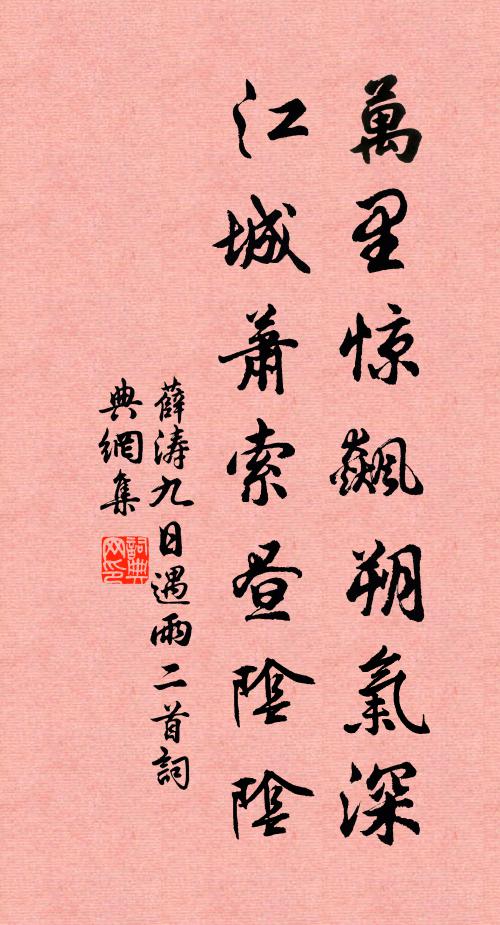 萬里惊飆朔氣深
江城蕭索昼陰陰
薛涛九日遇雨二首詞
典網集
詞典
网印